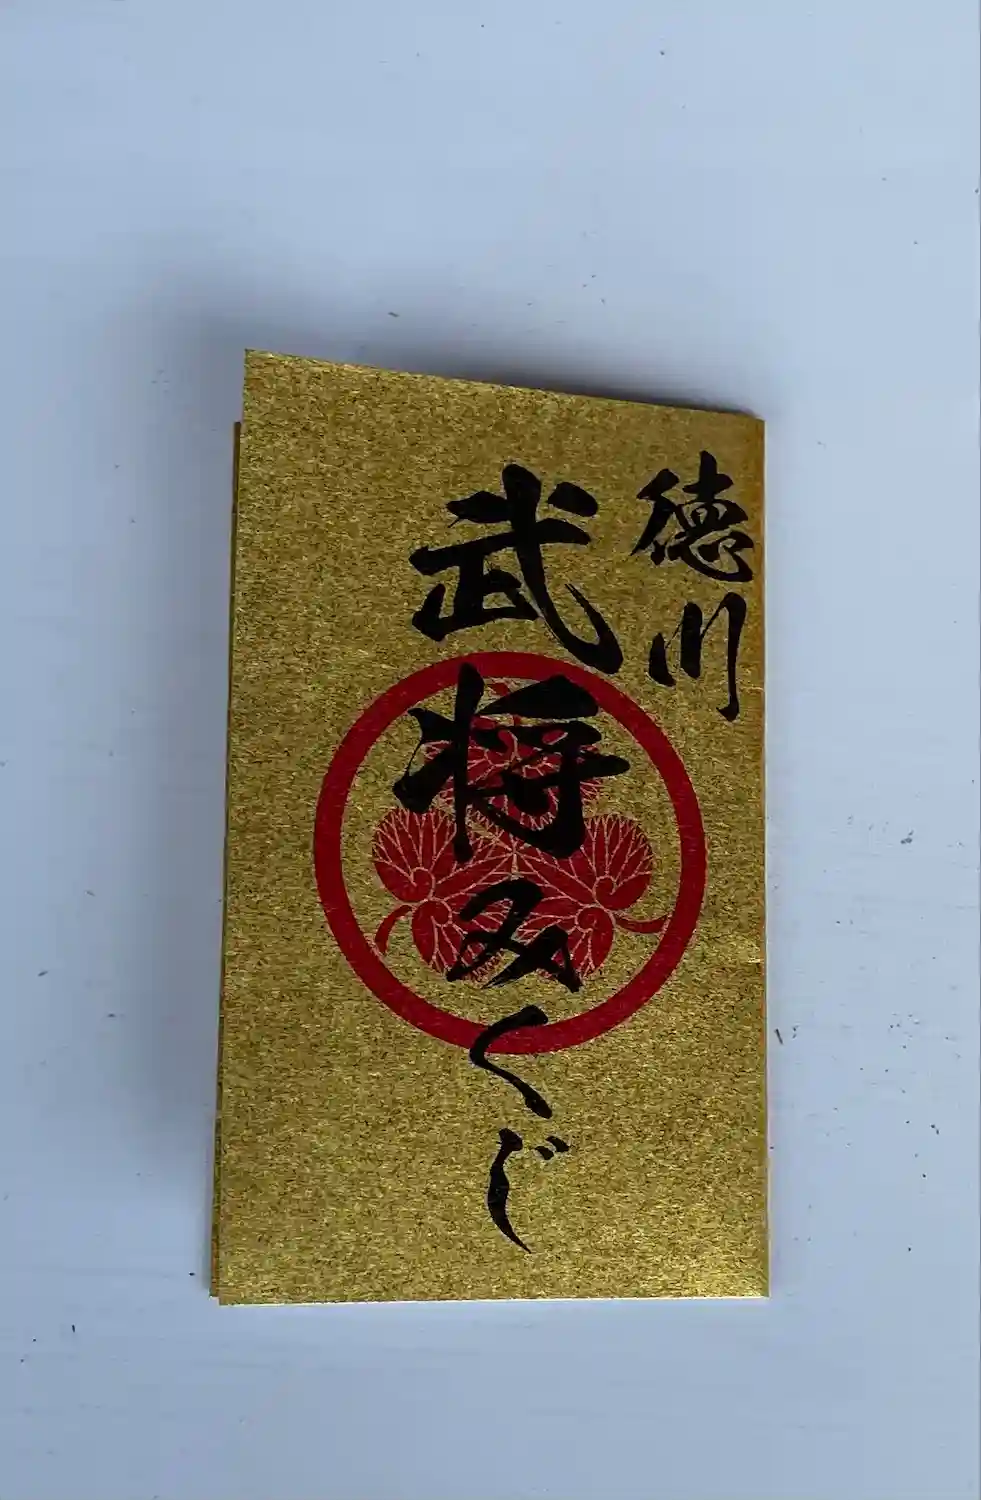 徳川
武将みくじ